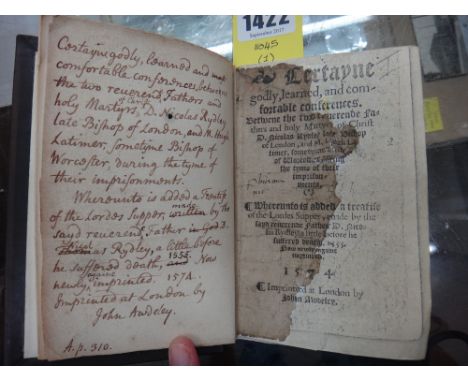 1422
September 2017
8045
(1)
Certayne godly, learned and most
comfortable conferences, betwene
the two reverend Fathers and
holy Martyrs of Christ, D. Nicolas Rydley
late Bishop of London, and M. Hugh
Latimer, Sometyme Bishop of
Worcester, during the tyme of
their imprisonments.
Whereunto is added a Treatise
of the Lordes Supper, made by the
sayd reverend Father in God D.
Nicolas Rydley, a little before
he suffered death, 1555. Now
newly agayne imprinted. 1574.
Imprinted at London by
John Awdeley.
A.p. 310.
Certayne
godly, learned, and com-
fortable conferences.
Betwene the two reuerende Fa-
thers and holy Martyrs of Christ
D. Nicolas Rydley late Bishop
of London, and M. Hugh La-
timer, sometyme
of Worcester, during
the tyme of their
imprison-
ments.
¶ Whereunto is added a treatise
of the Lordes Supper, made by the
sayd reuerende Father D. Nico-
las Rydley a little before he
suffered death, 1555.
Now newly agayne
imprinted.
1574
¶ Imprinted at London by
John Awdeley.